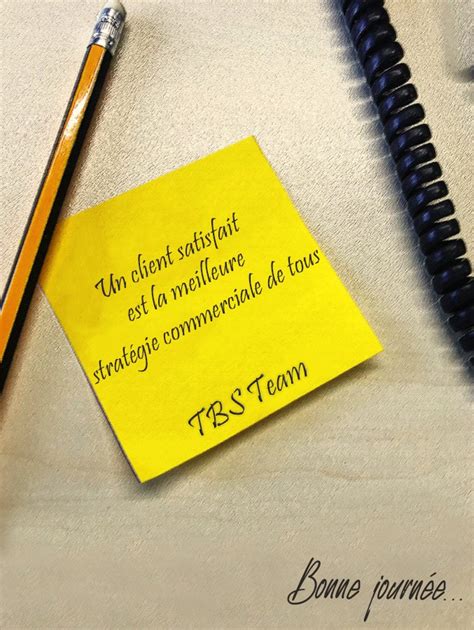 Un client satisfait
est la meilleure
stratégie commerciale de tous
TBS Team
Bonne journée...